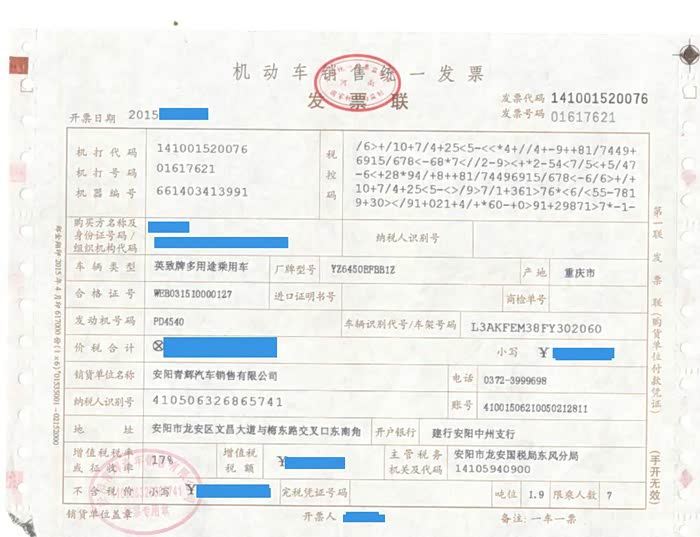 机动车销售统一发票
发票联
发票代码 141001520076
发票号码 01617621
开票日期 2015
机打代码 141001520076
机打号码 01617621
机器编号 661403413991
税控码
/6>+/10+7/4+25<5-<<*4+//4+-9++81/7449+
6915/678<-68*7<//2-9><+*2-54<7/5<+5/47
-6<+28*94/+8++81/74496915/678<-6/6>+/+
10+7/4+25<5-<>/9>7/1+361>76*<6/<55-7819
+30></91+021+4/+*60-+0>91+29871>7*-1-
购买方名称及
身份证号码/
组织机构代码
纳税人识别号
车辆类型 英致牌多用途乘用车 厂牌型号 YZ6450BFBB1Z 产地 重庆市
合格证号 WEB031510000127 进口证明书号 商检单号
发动机号码 PD4540 车辆识别代号/车架号码 L3AKFEM38FY302060
价税合计 ⊗ 小写 ¥
销货单位名称 安阳青辉汽车销售有限公司 电话 0372-3999698
纳税人识别号 410506326865741 账号 41001506210050212811
地址 安阳市龙安区文昌大道与梅东路交叉口东南角 开户银行 建行安阳中州支行
增值税税率
或征收率
17%
增值税
税额
¥
主管税务
机关及代码
安阳市龙安国税局东风分局
14105940900
不含税价 小写 ¥ 完税凭证号码 吨位 1.9 限乘人数 7
销货单位盖章 开票人 备注:一车一票
第一联 发票联(购货单位付款凭证)
(手开无效)